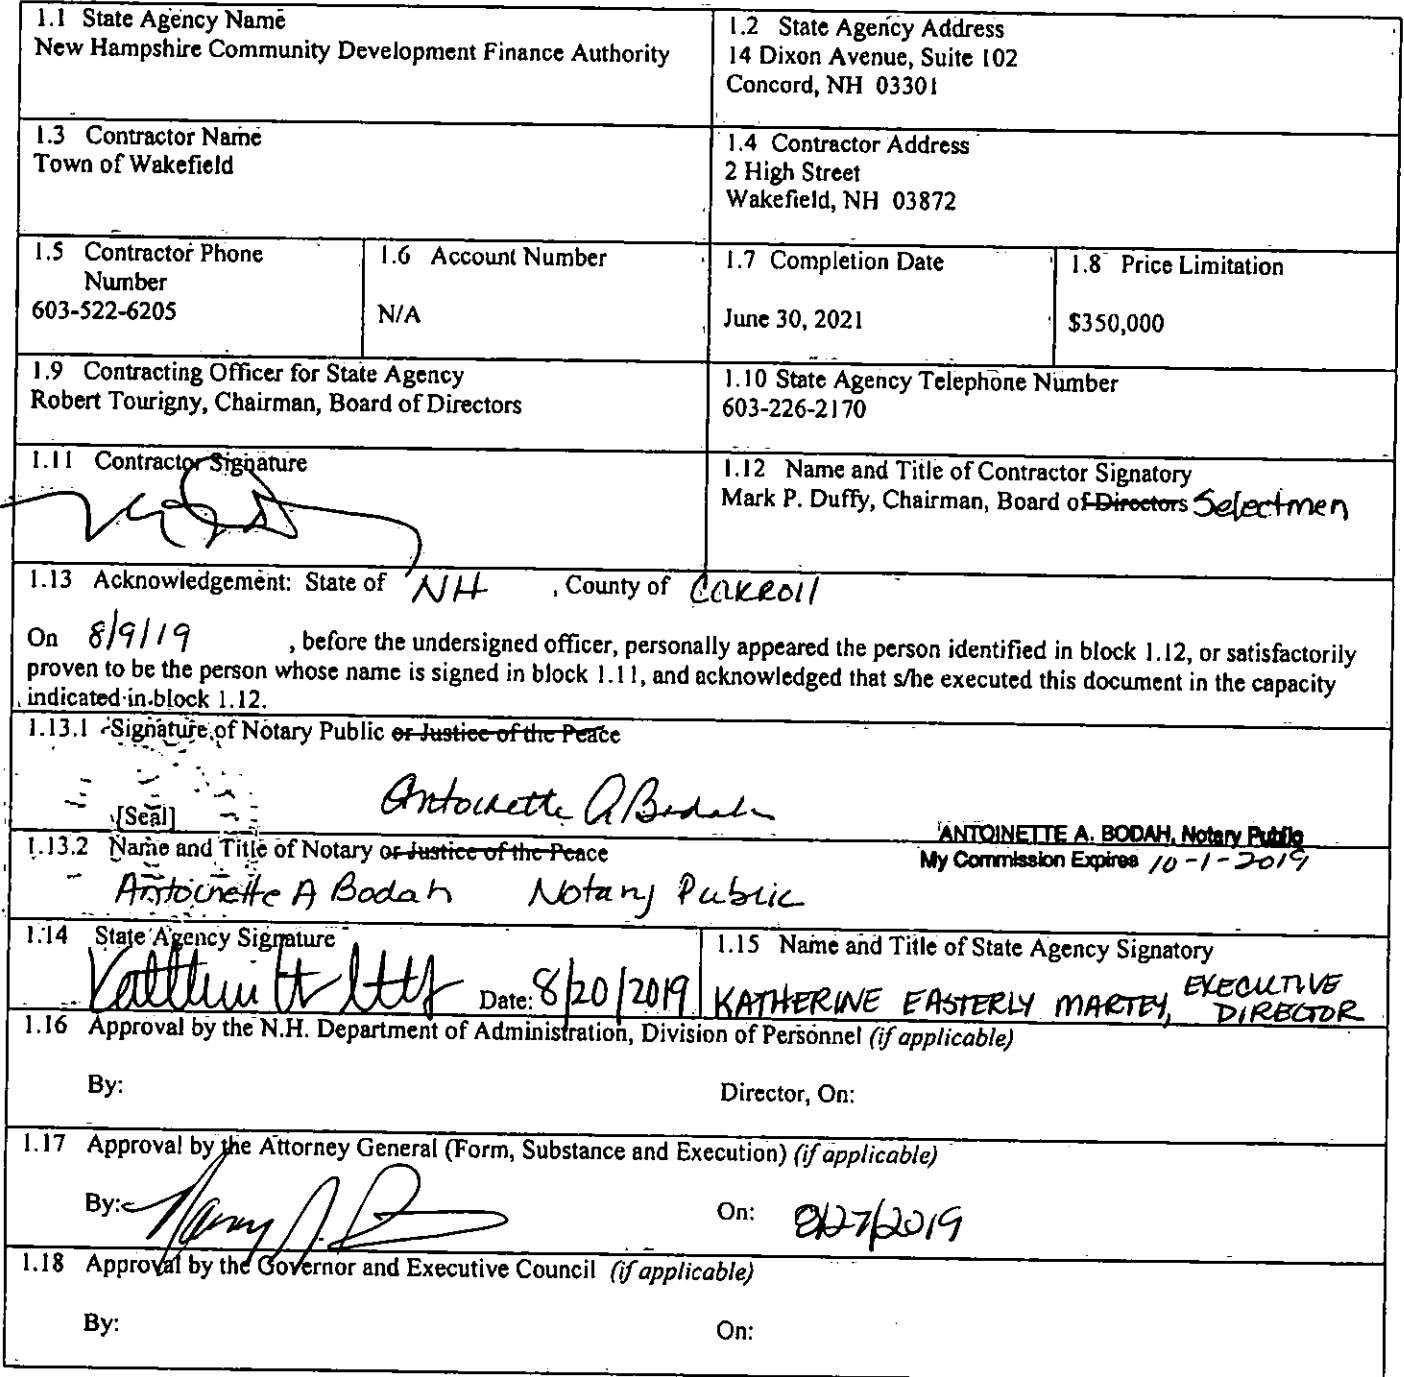 1.1 State Agency Name
New Hampshire Community Development Finance Authority
1.2 State Agency Address
14 Dixon Avenue, Suite 102
Concord, NH 03301
1.3 Contractor Name
Town of Wakefield
1.4 Contractor Address
2 High Street
Wakefield, NH 03872
1.5 Contractor Phone
Number
603-522-6205
1.6 Account Number
N/A
1.7 Completion Date
June 30, 2021
1.8 Price Limitation
$350,000
1.9 Contracting Officer for State Agency
Robert Tourigny, Chairman, Board of Directors
1.10 State Agency Telephone Number
603-226-2170
1.11 Contractor Signature
1.12 Name and Title of Contractor Signatory
Mark P. Duffy, Chairman, Board of Directors Selectmen
1.13 Acknowledgement: State of NH , County of Carroll
On 8/9/19 , before the undersigned officer, personally appeared the person identified in block 1.12, or satisfactorily
proven to be the person whose name is signed in block 1.11, and acknowledged that s/he executed this document in the capacity
indicated in block 1.12.
1.13.1 Signature of Notary Public or Justice of the Peace
Antoinette A Bodah
[Seal]
ANTOINETTE A. BODAH, Notary Public
My Commission Expires 10-1-2019
1.13.2 Name and Title of Notary or Justice of the Peace
Antoinette A Bodah Notary Public
1.14 State Agency Signature
Date: 8/20/2019
1.15 Name and Title of State Agency Signatory
KATHERINE EASTERLY MARTEY, EXECUTIVE
DIRECTOR
1.16 Approval by the N.H. Department of Administration, Division of Personnel (if applicable)
By:
Director, On:
1.17 Approval by the Attorney General (Form, Substance and Execution) (if applicable)
By:
On: 8/27/2019
1.18 Approval by the Governor and Executive Council (if applicable)
By:
On: